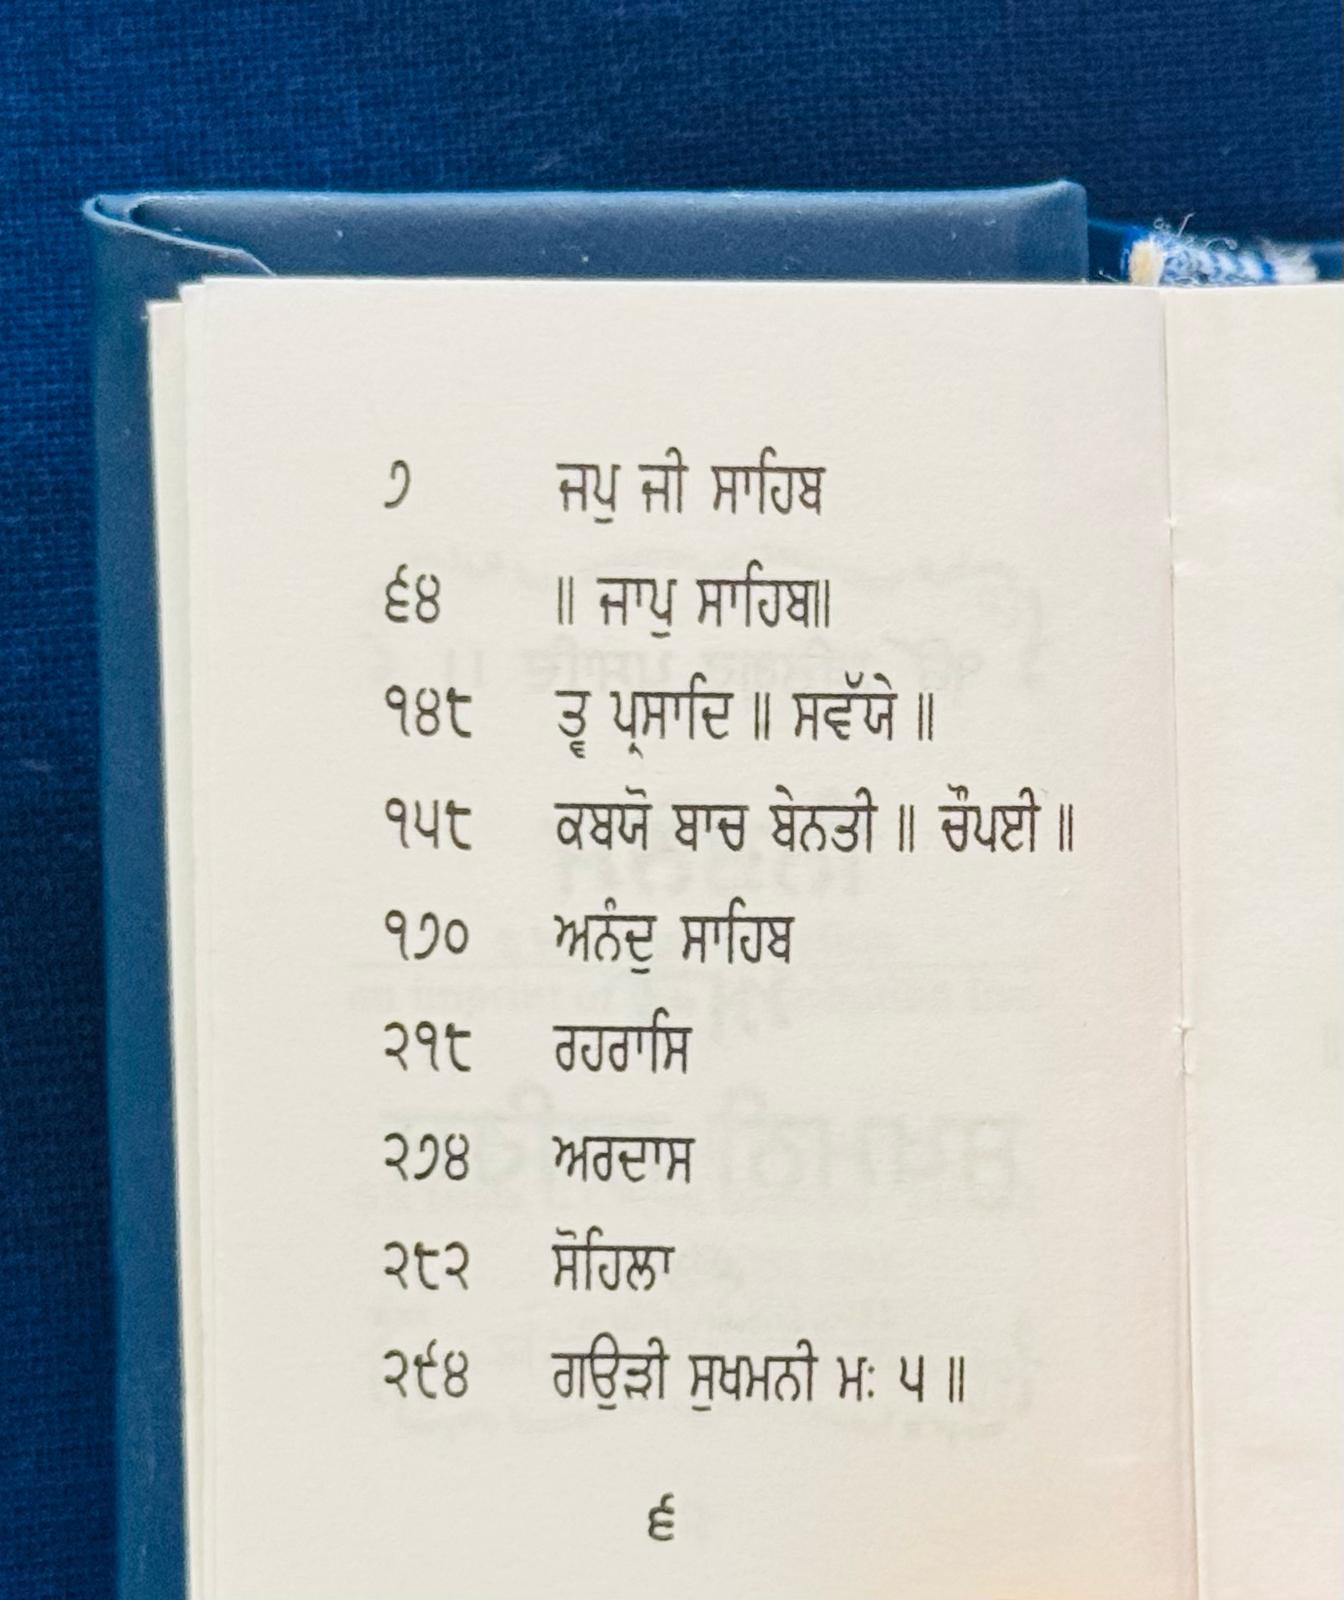 ੭ ਜਪੁ ਜੀ ਸਾਹਿਬ
੬੪ ॥ ਜਾਪੁ ਸਾਹਿਬ॥
੧੪੮ ਤ੍ਵ ਪ੍ਰਸਾਦਿ ॥ ਸਵੱਯੇ ॥
੧੫੮ ਕਬਯੋ ਬਾਚ ਬੇਨਤੀ ॥ ਚੌਪਈ ॥
੧੭੦ ਅਨੰਦੁ ਸਾਹਿਬ
੨੧੮ ਰਹਰਾਸਿ
੨੭੪ ਅਰਦਾਸ
੨੮੨ ਸੋਹਿਲਾ
੨੯੪ ਗਉੜੀ ਸੁਖਮਨੀ ਮਃ ੫ ॥
੬